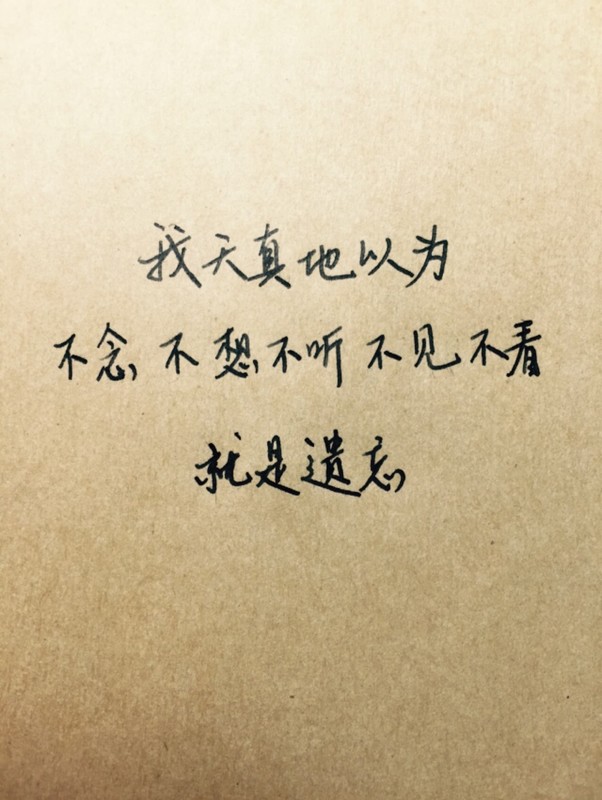 我天真地以为
不念 不想 不听 不见 不看
就是遗忘